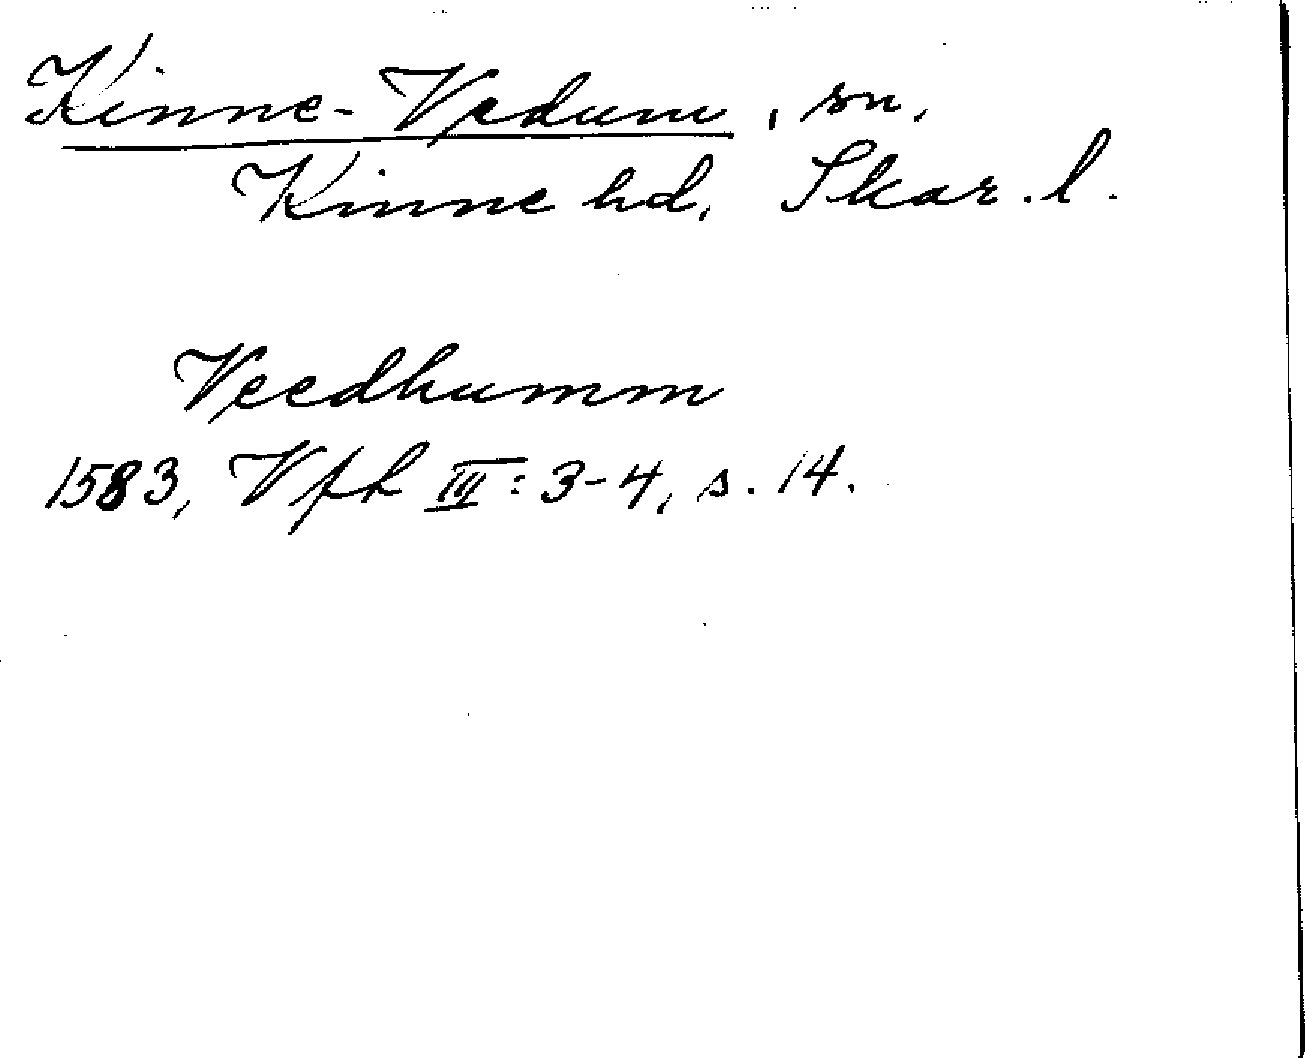 Kinne-Vedum, sn,
Kinne hd, Skar. l.
Veedhumm
1583, Vfh III: 3-4, s. 14.